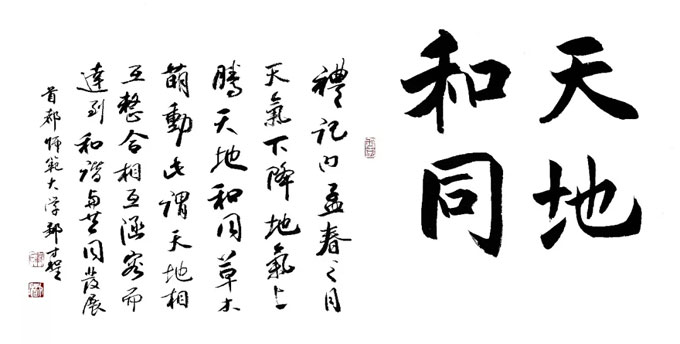 天地
和同
禮記曰孟春之月
天氣下降地氣上
騰天地和同草木
萌動此謂天地相
互整合相互涵容而
達到和谐与共同发展
首都师範大学